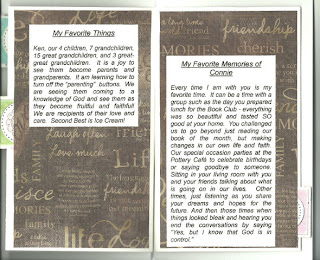 My Favorite Things
Ken, our 4 children, 7 grandchildren,
15 great grandchildren, and 3 great-
great grandchildren. It is a joy to
see them become parents and
grandparents. It am learning how to
turn off the "parenting" buttons. We
are seeing them coming to a
knowledge of God and see them as
they become fruitful and faithful
We are recipients of their love and
care. Second Best is Ice Cream!
FAMILY
laugh often
love much
MEMORIES
love
a long time
friendship
cherish
My Favorite Memories of
Connie
Every time I am with you is my
favorite time. It can be a time with a
group such as the day you prepared
lunch for the Book Club - everything
was so beautiful and tasted SO
good at your home. You challenged
us to go beyond just reading our
book of the month, but making
changes in our own life and faith.
Our special occasion parties at the
Pottery Café to celebrate birthdays
or saying goodbye to someone.
Sitting in your living room with you
and your friends talking about what
is going on in our lives. Other
times, just listening as you share
your dreams and hopes for the
future. And then those times when
things looked bleak and hearing you
end the conversations by saying
"Yes, but I know that God is in
control."